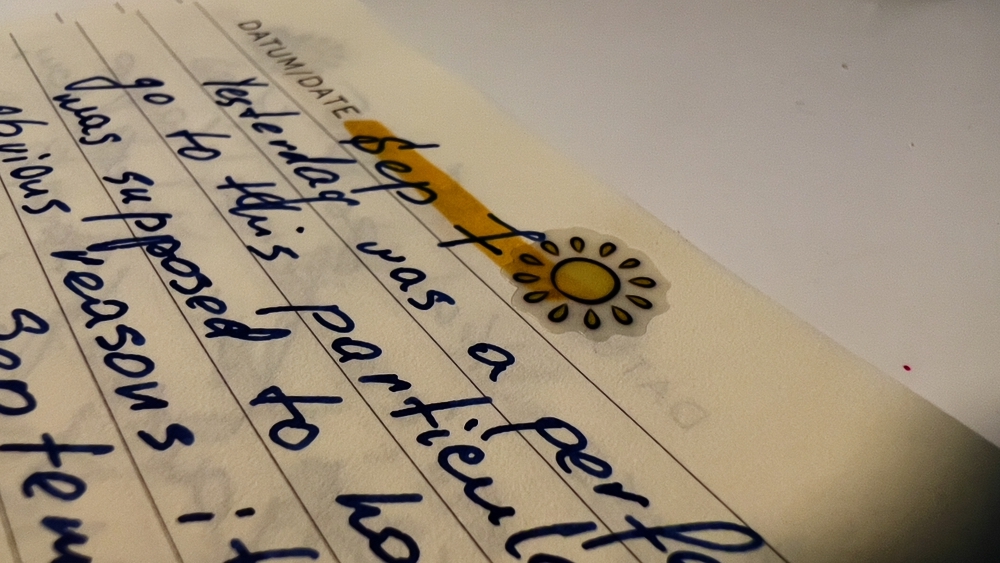 DATUM/DATE Sep 7
Yesterday was a perf
go to this particul
was supposed to ho
obvious reasons it
Sep tem